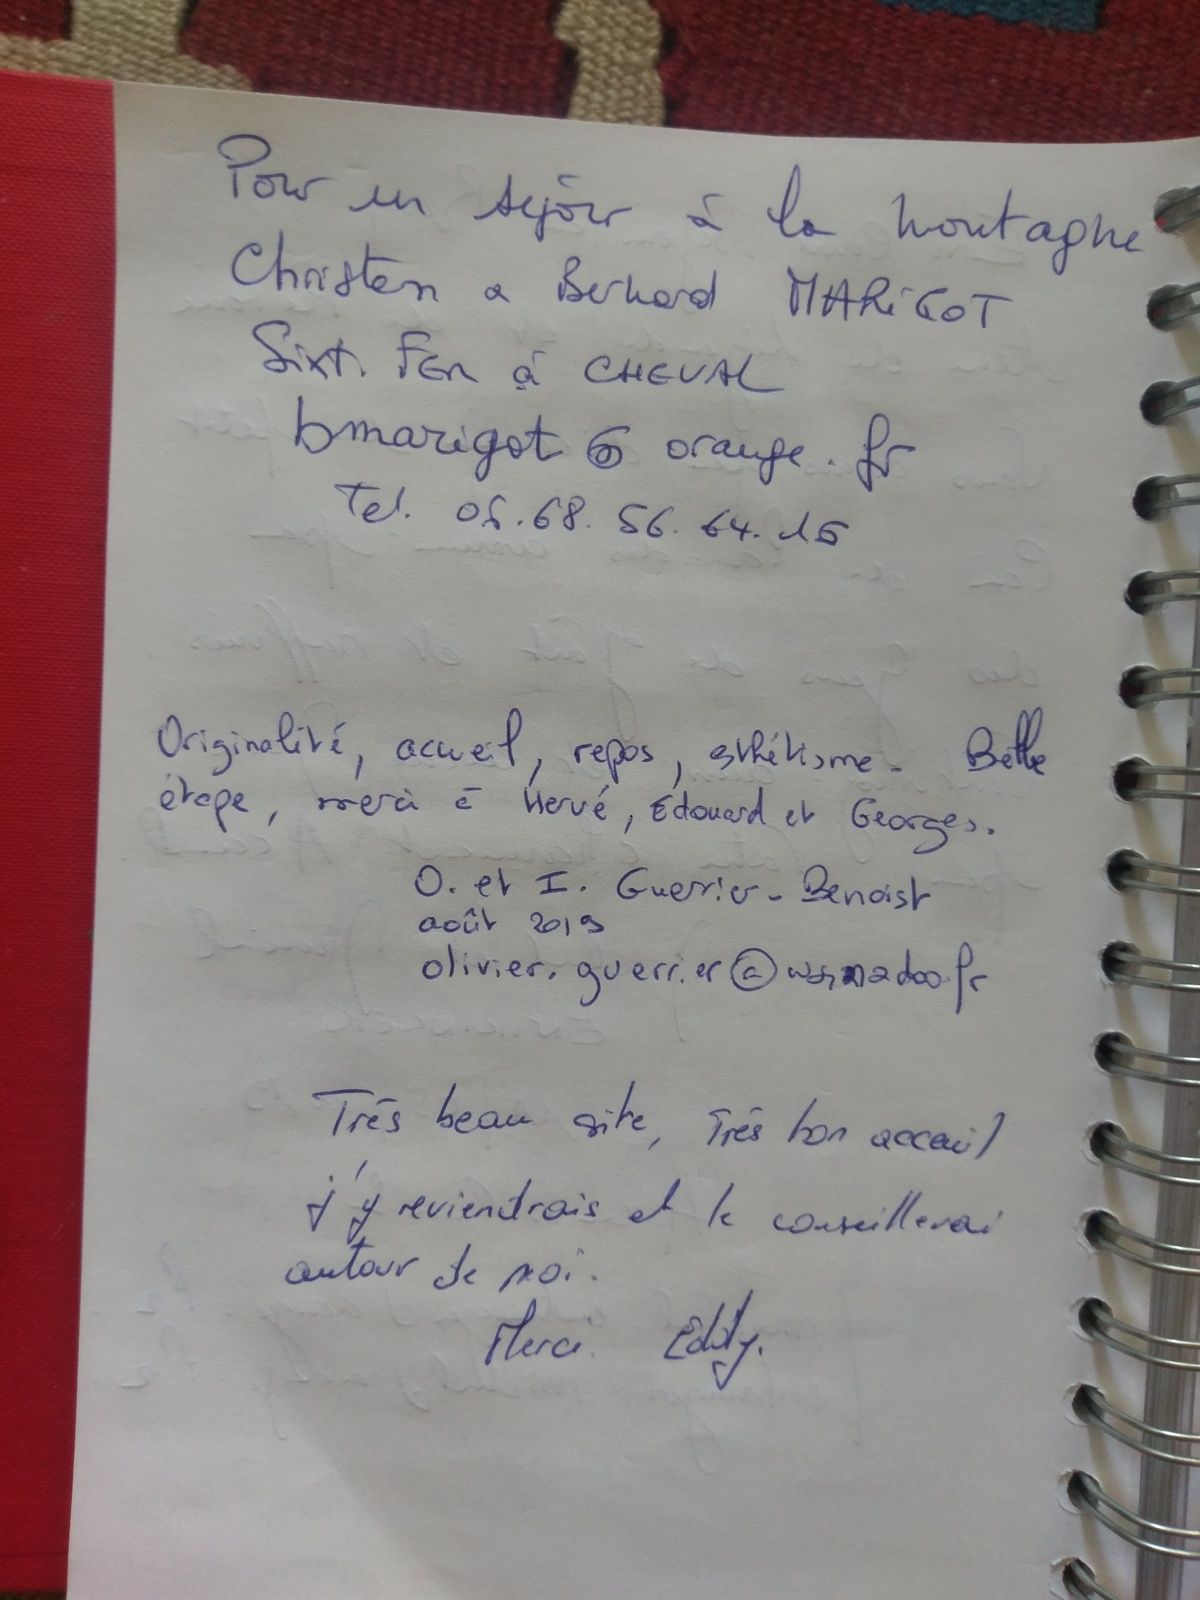 Pour un séjour à la montagne
Christen a Bernard MARIGOT
Sixt. FER à CHEVAL
bmarigot@orange.fr
Tel. 06.68.56.64.15
Originalité, accueil, repos, esthétisme. Belle
étape, merci à Hervé, Edouard et Georges.
O. et I. Guerrier-Benoist
août 2019
olivier.guerrier@wanadoo.fr
Très beau site, Très bon accueil
j'y reviendrais et le conseillerai
autour de moi.
Merci Eddy.